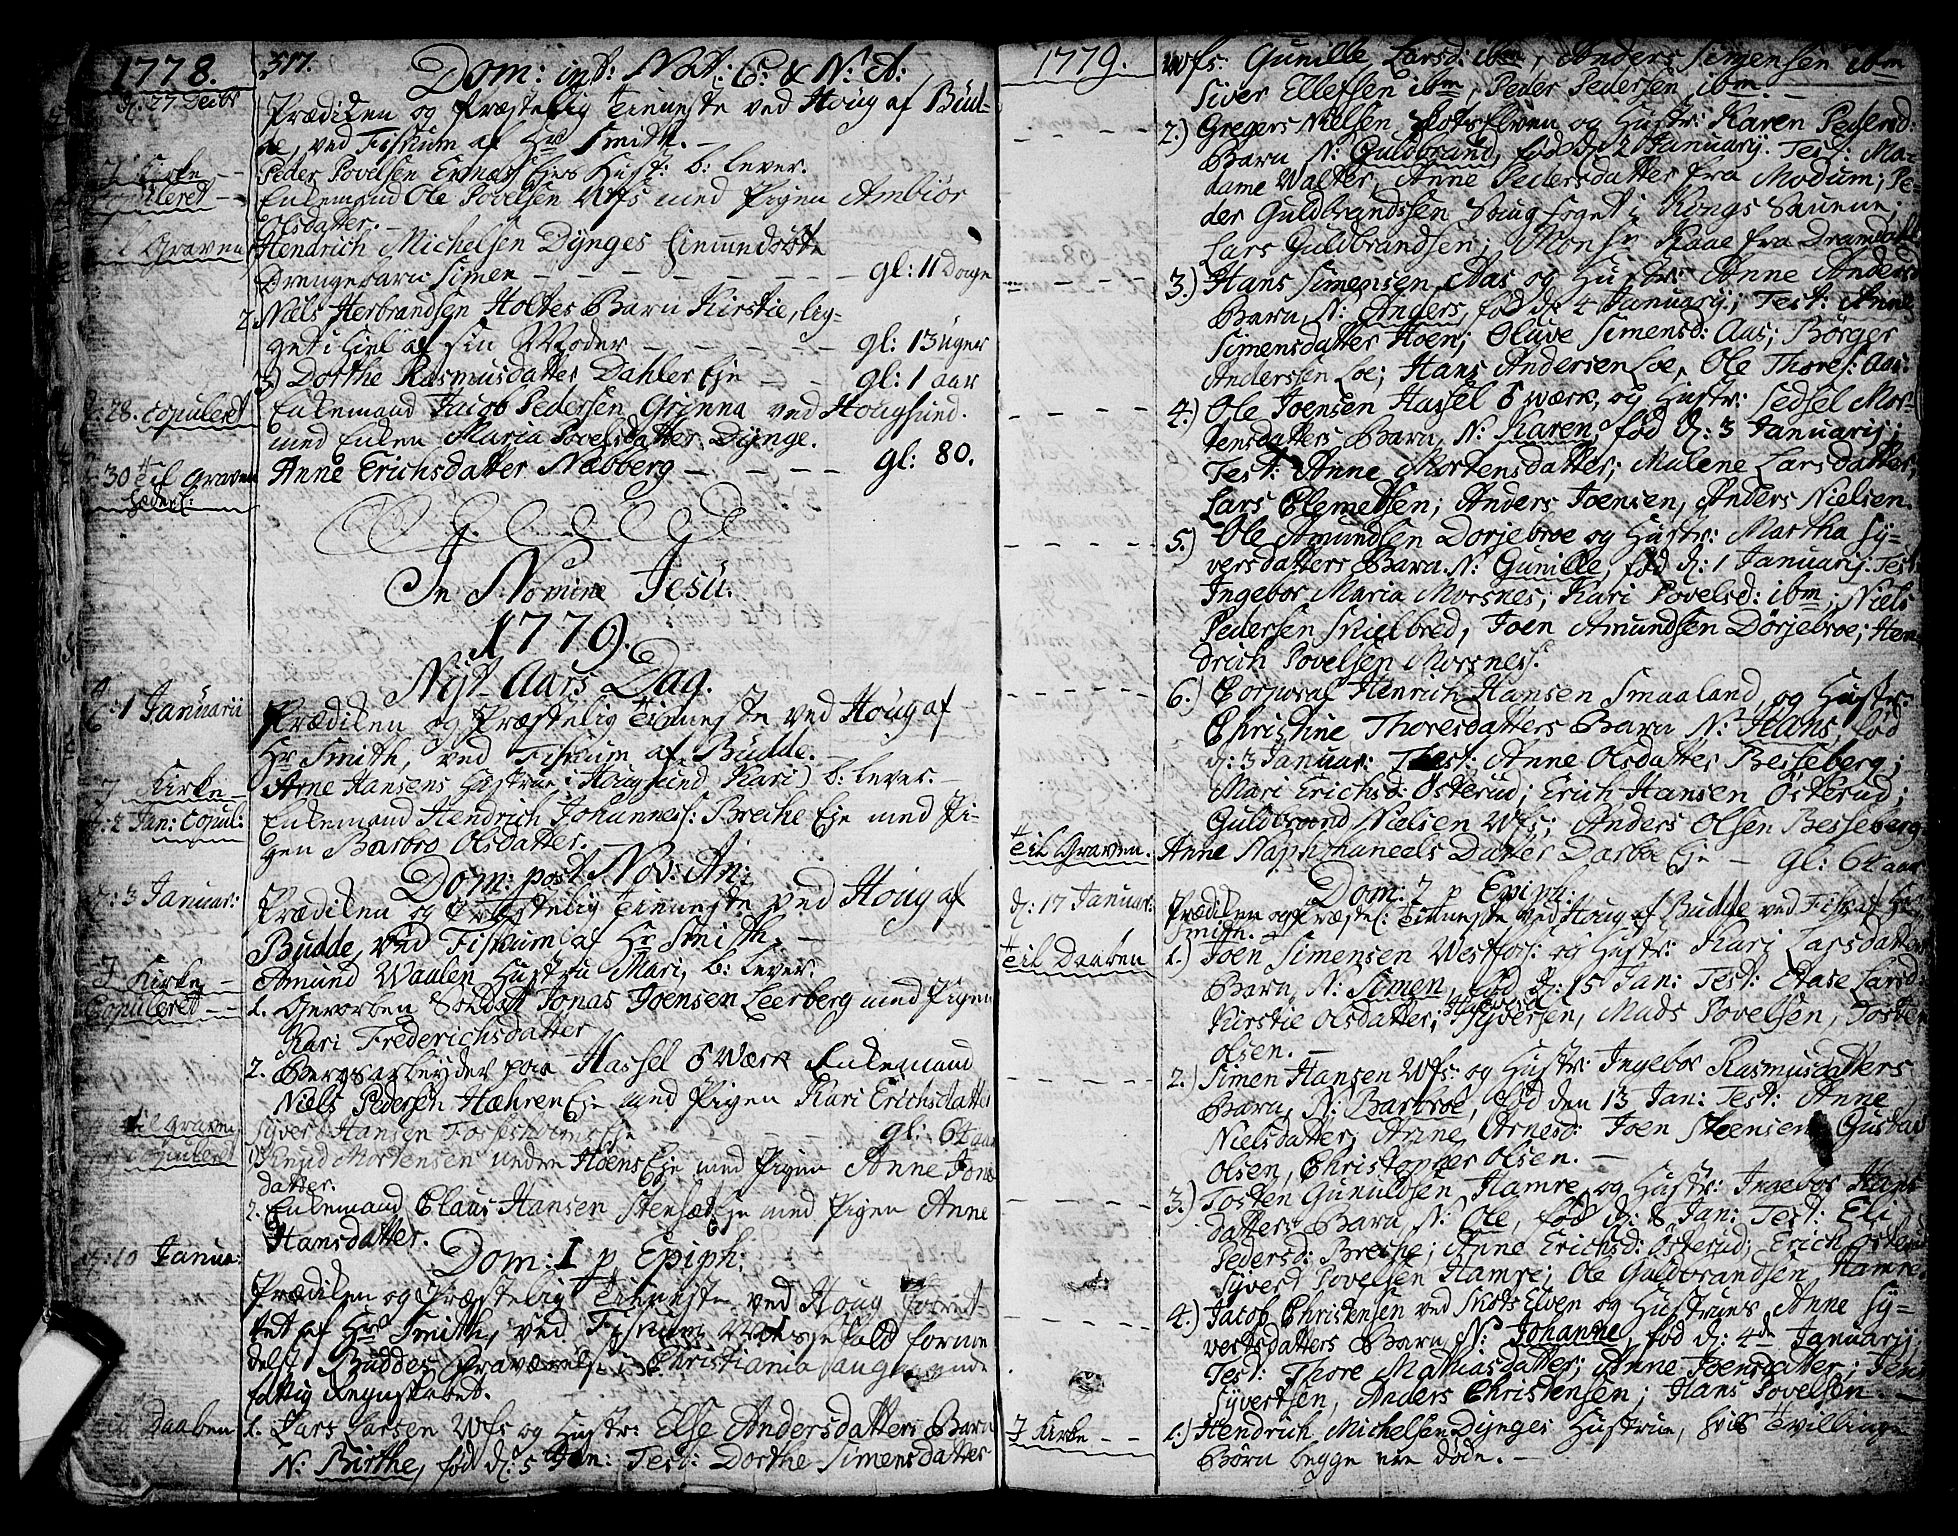 1778.
317.
Dom: int: Nat: C: & N: A:
d: 27 Decbr
Prædiken og Præstelig Tienneste ved Houg af Bud-
de, ved Fiskum af Hr Smith. -
J Kirke
Peder Povelsen Ernæs Ejes Hust: b: lever.
Copuleret
Enkemand Ole Povelsen Wfs med Pigen Ambiør
Olsdatter. -
til Graven
Hendrich Michelsen Dynges
Drengebarn Simen - - - - gl: 11 Dage
2. Niels Herbrandsen Holtes Barn Kirstie, lig-
get i Hiel af sin Moder - - - gl: 13 Uger
3) Dorthe Rasmusdatter Dahler Eje - - gl: 1 aar
d: 28. Copuleret
Enkemand Jacob Pedersen Grinna ved Hougsund.
med Enken Maria Povelsdatter Dynge.
d: 30 til Graven
Anne Erichsdatter Næbberg - - - - gl: 80.
In Nomine Jesu.
1779.
Nyt Aars Dag.
d: 1 Januarii
Prædiken og Præstelig Tienneste ved Houg af
Hr Smith, ved Fiskum af Budde. -
J Kirke -
Arne Hansens Hustrue Hougsund Kari) b: lever. -
d: 2 Jan: Copul:
Enkemand Hendrich Johanness: Breche Eje med Pi-
gen Barbro Olsdatter. -
Dom: post Nov: An:
d: 3 Januar:
Prædiken og Præstelig Tienneste ved Houg af
Budde, ved Fiskum af Hr Smith. -
J Kirke -
Amund Waalen Hustru Mari, b: lever.
Copuleret - -
1. Gevorben Soldat Jonas Joensen Leerberg med Pigen
Kari Frederichsdatter
2. Bergsarbeyder paa Hassel S Wærk Enkemand
Niels Pedersen Hæhren Eje med Pigen Kari Erichsdatter
til Graven
Syver Hansen Fossesholms Eje - - gl: 64 aar
Copuleret
1) Knud Mortensen under Hoens Eje med Pigen Anne Jons
datter.
2. Enkemand Claus Hansen Stensæt Eje med Pigen Anne
Hansdatter.
Dom: I p Epiph:
d: 10 Januar:
Prædiken og Præstelig Tienneste ved Houg forret-
tet af Hr Smith, ved Fiskum Messefald forme
delst Buddes Fraværelse i Christiania
fattig Regnskabet.
til Daaben
1. Lars Larsen Wfs og Hustr: Else Andersdatters Barn
N: Birthe, fød d: 5 Jan: Test: Dorthe Simensdatter
1779.
Wfs. Gunille Larsd: ibm, Anders Simensen ibm
Siver Ellefsen ibm, Peder Pedersen ibm. -
2.) Gregers Nielsen Skots Elven og Hustr: Karen Pedersd:
Barn N: Guldbrand, fød d: 2 Januarij. Test: Ma-
dame Walter, Anne Pedersdatter fra Modum; Pe-
der Guldbrandssen Saugfoget i Kongs Saugene;
Lars Guldbrandsen; Monsr Kaae fra Dram
3.) Hans Simensen Aas og Hustr: Anne Andersd
Barn, N: Anders, fød d: 4 Januarij; Test: Anne
Simensdatter Hoen; Oluve Simensd: Aas; Børger
Anderssen Loe; Hans Andersen Loe, Ole Thores: Aas:
4.) Ole Joensen Hassel S Wærk, og Hustr: Sedsel Mor-
tensdatters Barn, N: Karen, fød d: 3 Januarij;
Test: Anne Mortensdatter; Malene Larsdatter;
Lars Clemetsen; Anders Joensen, Anders Nielsen.
5.) Ole Amundsen Dorjebroe og Hustr: Martha Sy-
versdatters Barn. N: Gunille, fød d: 1 Januarij. Test
Ingebor Maria Morsnes; Kari Povelsd: ibm; Niels
Pedersen Skielbred, Joen Amundsen Dørjebroe; Hen
drich Povelsen Morsness.
6.) Corporal Henrich Hansen Smaaland, og Hustr:
Christine Thoresdatters Barn N: Hans, fød
d: 3 Januar: Test: Anne Olsdatter Besseberg;
Mari Erichsd: Østerud; Erich Hansen Østerud;
Guldbrand Nielsen Wfs; Anders Olsen Besseberg
til Graven.
Anne Naphthaneels Datter Darbo Eje - gl: 64 aar
Dom: 2 p Epiph:
d: 17 Januar:
Prædiken og Præstel: Tienneste ved Houg af Budde ved Fisk: af Hr
Smith. -
til Daaben
1.) Joen Simensen Westfos: og Hustr: Kari Larsdatters
Barn, N: Simen, fød d: 15 Jan: Test: Else Larsd
Kirstie Olsdatter; Halvor Syversen, Mads Povelsen, Tosten
Olsen. -
2.) Simen Hansen Wfs: og Hustr: Ingebor Rasmusdatters
Barn, N: Barbroe, fød den 13 Jan: Test: Anne
Nielsdatter, Anne Arnesd: Joen Steensen, Gustav
Olsen, Christopher Olsen. -
3.) Tosten Gunuldsen Hamre, og Hustr: Ingebor Hans
datters Barn, N: Ole, fød d: 8 Jan: Test: Eli
Pedersd: Breche; Anne Erichsd: Østerud; Erich Østerud
Syverd Povelsen Hamre; Ole Guldbrandsen Hamre.
4.) Jacob Christensen ved Skots Elven og Hustrues Anne Sy-
vertsdatters Barn, N: Johanne, fød d: 4de Januarij;
Test: Thore Mathiasdatter; Anne Joensdatter; Jens
Syvertsen, Anders Christensen; Hans Povelsen. -
J Kirke - -
1.) Hendrich Michelsen Dynges Hustrue, hvis Tvillinge
Børn begge ere døde. -